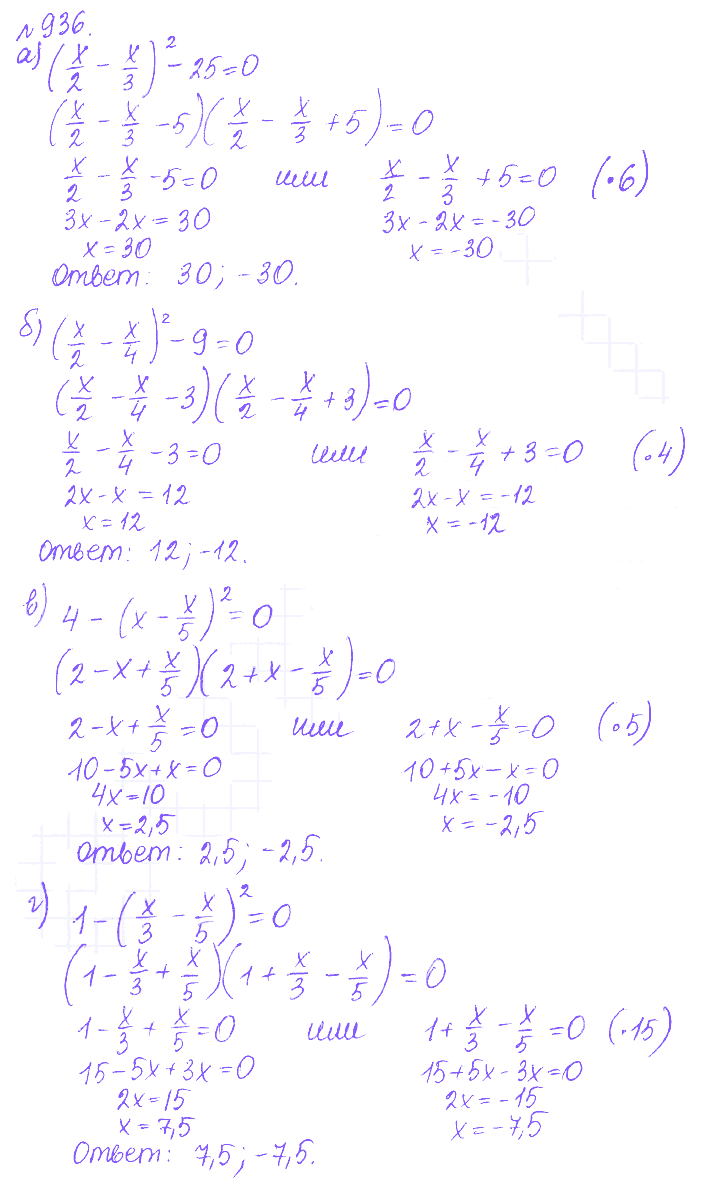 №936.
а) (x/2 - x/3)² - 25 = 0
(x/2 - x/3 - 5)(x/2 - x/3 + 5) = 0
x/2 - x/3 - 5 = 0 или x/2 - x/3 + 5 = 0 (·6)
3x - 2x = 30 3x - 2x = -30
x = 30 x = -30
Ответ: 30; -30.
б) (x/2 - x/4)² - 9 = 0
(x/2 - x/4 - 3)(x/2 - x/4 + 3) = 0
x/2 - x/4 - 3 = 0 или x/2 - x/4 + 3 = 0 (·4)
2x - x = 12 2x - x = -12
x = 12 x = -12
Ответ: 12; -12.
в) 4 - (x - x/5)² = 0
(2 - x + x/5)(2 + x - x/5) = 0
2 - x + x/5 = 0 или 2 + x - x/5 = 0 (·5)
10 - 5x + x = 0 10 + 5x - x = 0
4x = 10 4x = -10
x = 2,5 x = -2,5
Ответ: 2,5; -2,5.
г) 1 - (x/3 - x/5)² = 0
(1 - x/3 + x/5)(1 + x/3 - x/5) = 0
1 - x/3 + x/5 = 0 или 1 + x/3 - x/5 = 0 (·15)
15 - 5x + 3x = 0 15 + 5x - 3x = 0
2x = 15 2x = -15
x = 7,5 x = -7,5
Ответ: 7,5; -7,5.